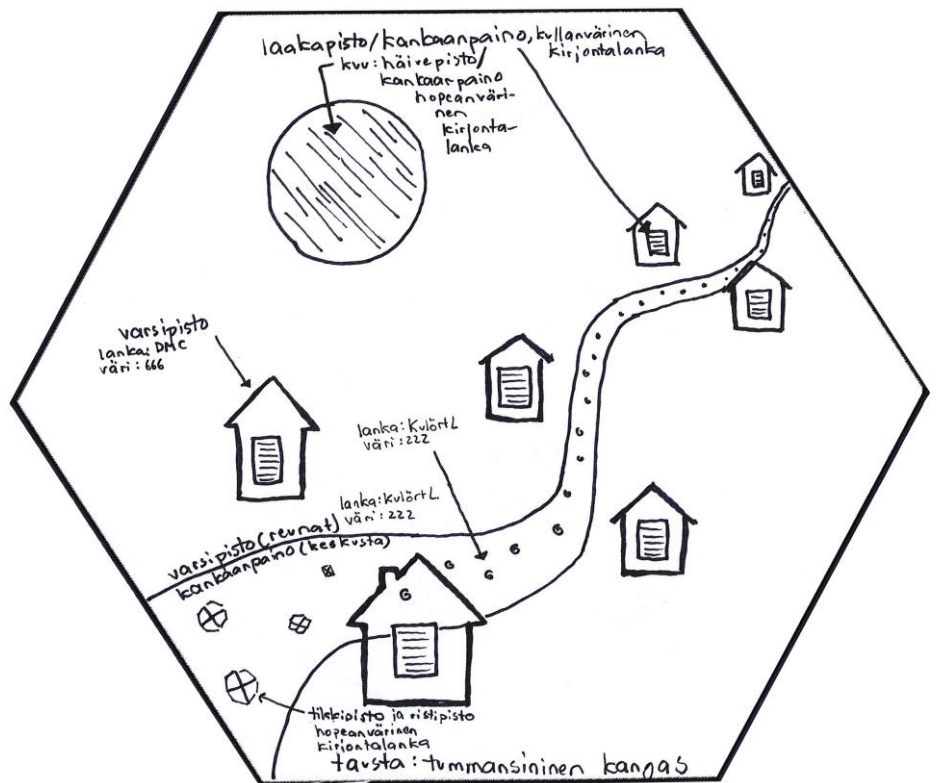 laakapisto/kankaanpaino, kullanvärinen
kirjontalanka
kuu: häivepisto/
kankaanpaino
hopeanväri-
nen
kirjonta-
lanka
varsipisto
lanka: DMC
väri: 666
lanka: Kulört L
väri: 222
lanka: Kulört L.
väri: 222
varsipisto (reunat)
kankaanpaino (keskusta)
tikkipisto ja ristipisto
hopeanvärinen
kirjontalanka
tausta: tummansininen kangas